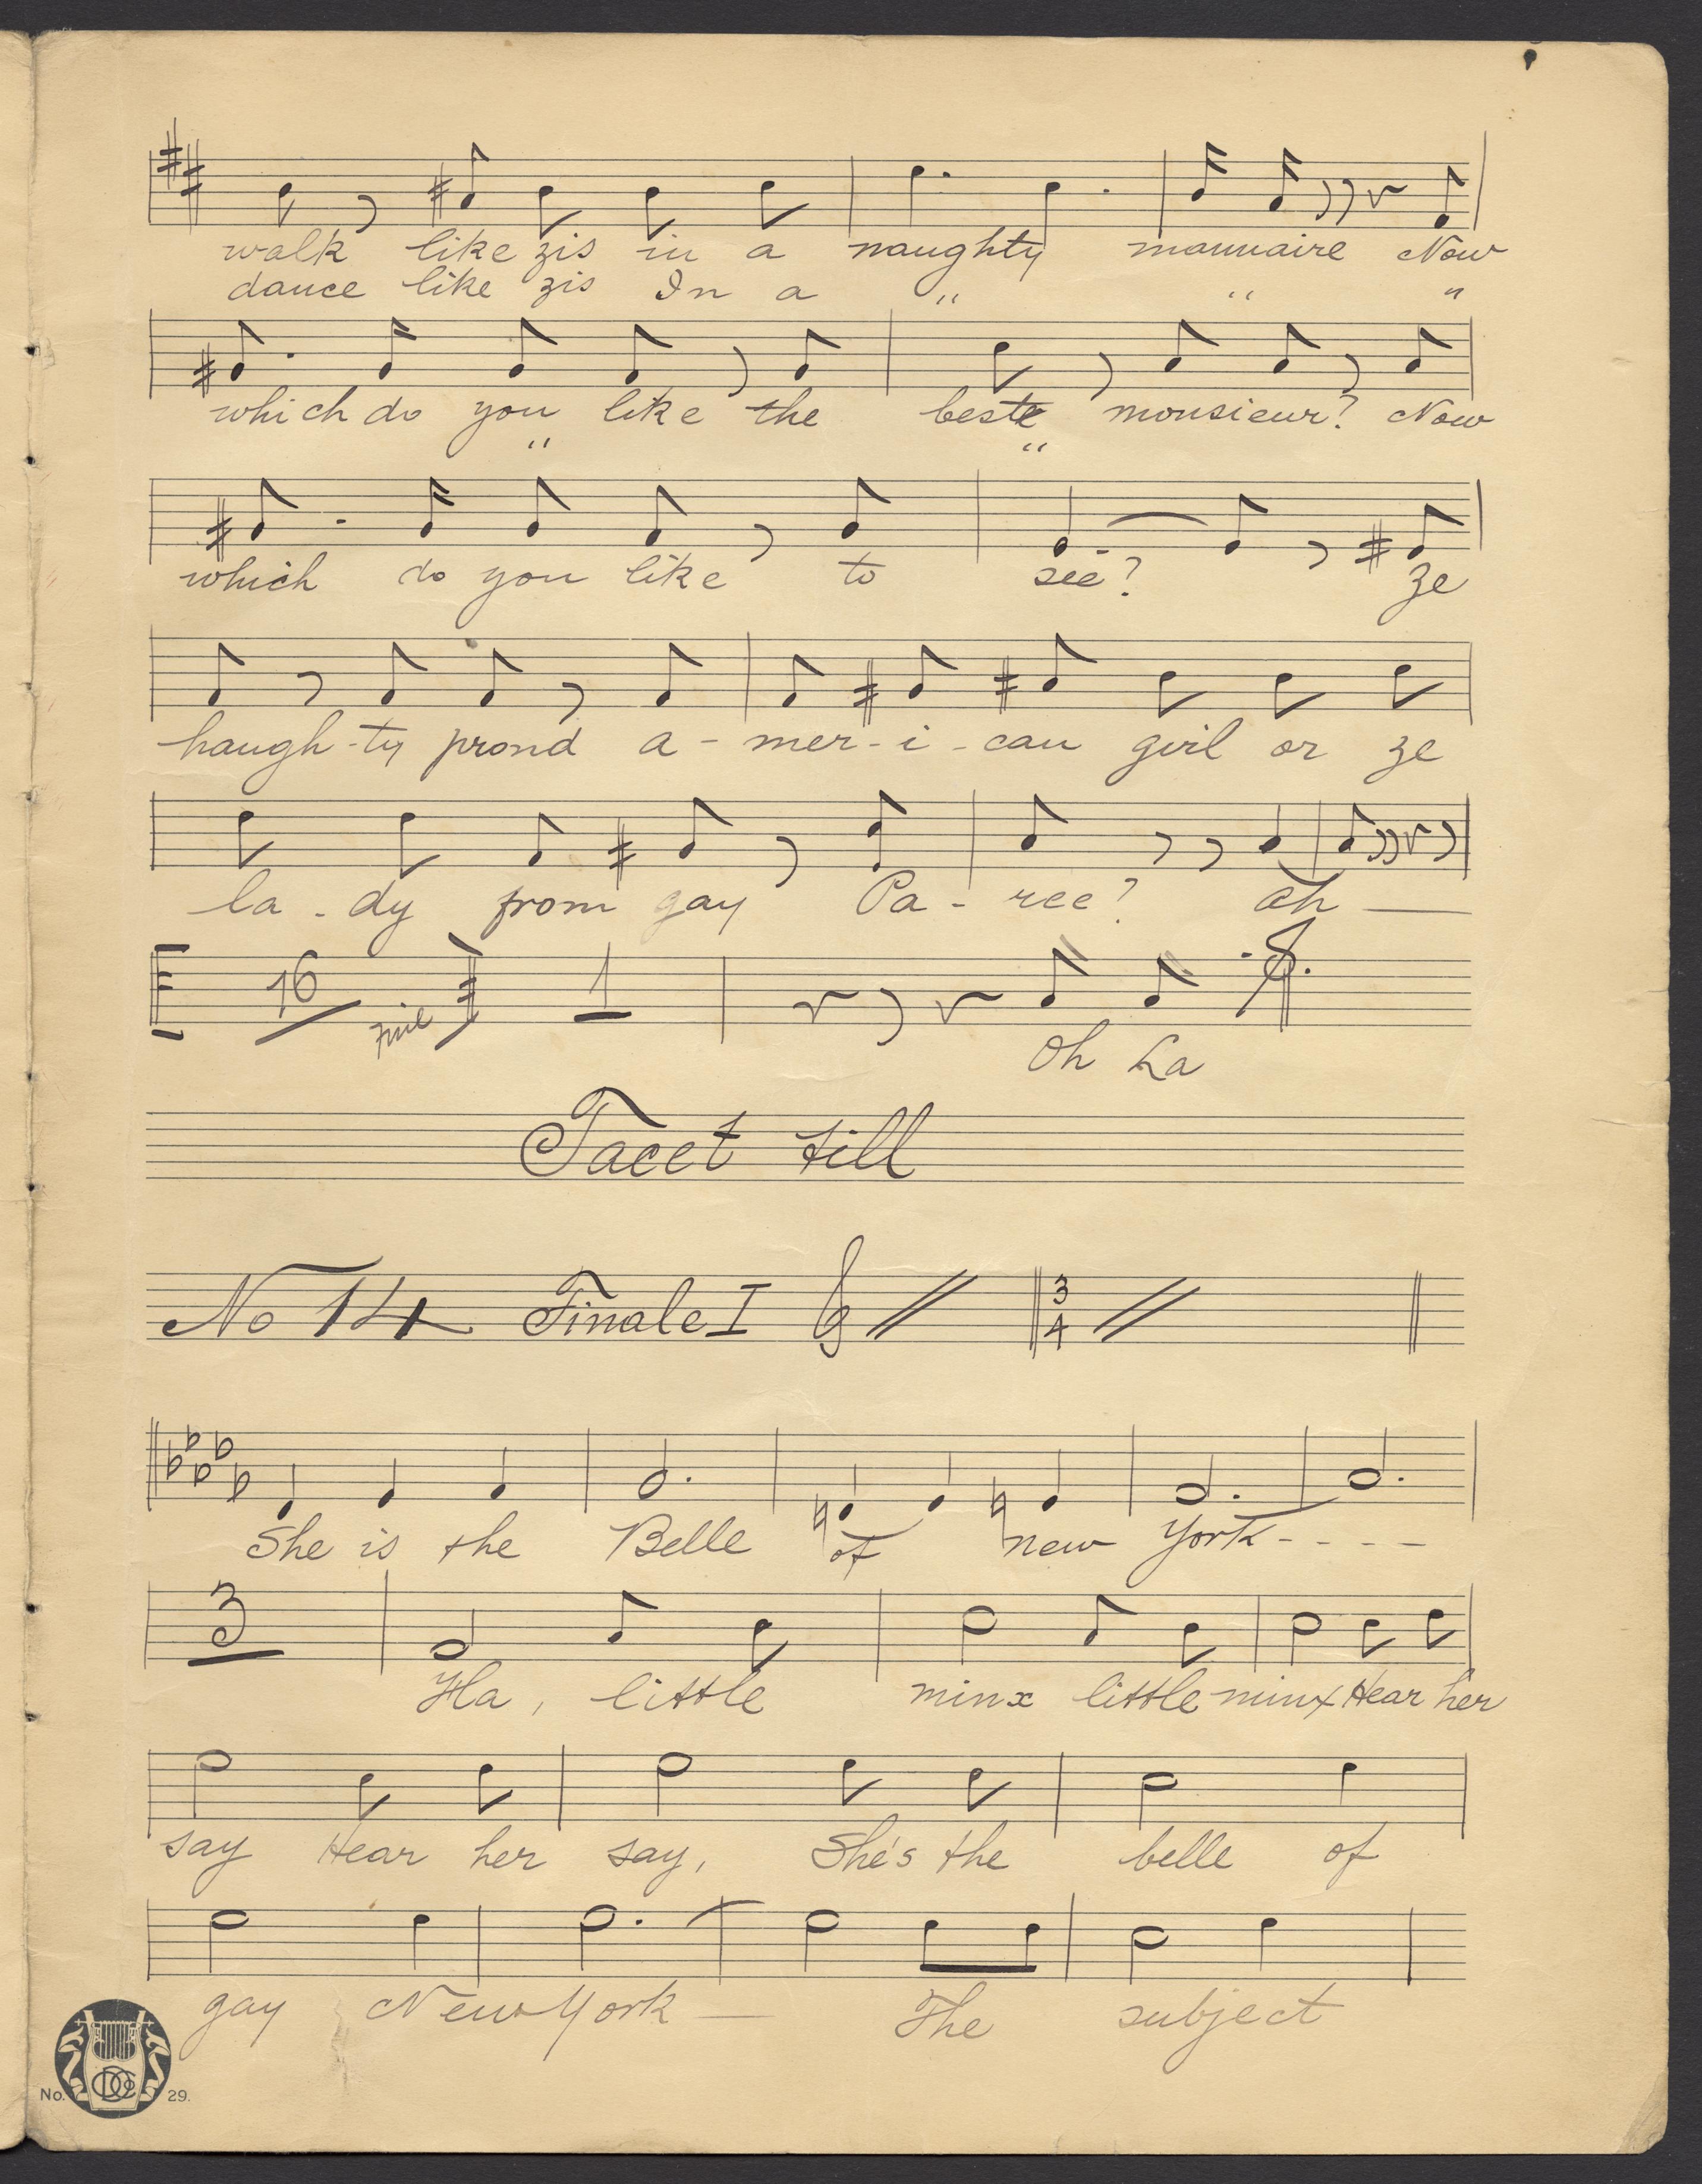 walk like zis in a naughty mannaire Now
dance like zis In a " " "
which do you like the beste monsieur? Now
" "
which do you like to see? ze
haugh-ty proud a-mer-i-can girl or ze
la-dy from gay Pa-ree? ah —
16 Fine 1
Oh La
Tacet till
No 14 Finale I 3/4
She is the Belle of new York - - - -
3
Ha, little minx little minx Hear her
say Hear her say, She's the belle of
gay New York — The subject
No. DCO 29.